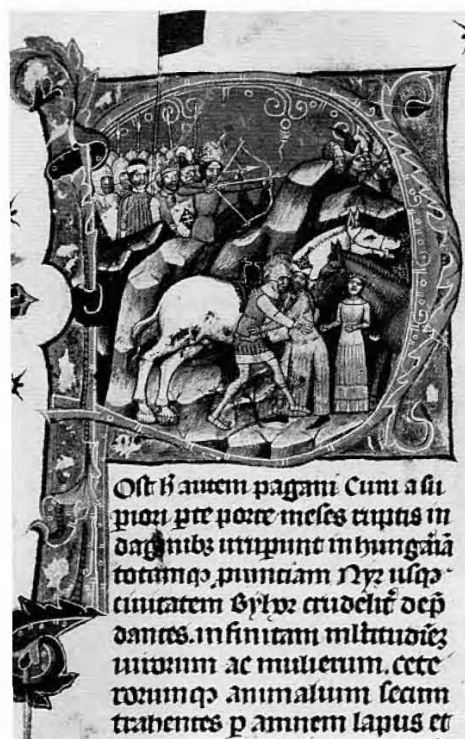 Post h̄ autem pagani Cuni a su
piori p̱te porte meses ruptis in
daginibꝫ irrupunt in hungariā
totamqꝫ ꝓuinciam Nyr usqꝫ
ciuitatem Byhor crudelit̄ dep̄
dantes. infinitam mltitudiēꝫ
uirorum ac mulierum. cete
rorumqꝫ animalium secum
trahentes ꝑ amnem lapus et